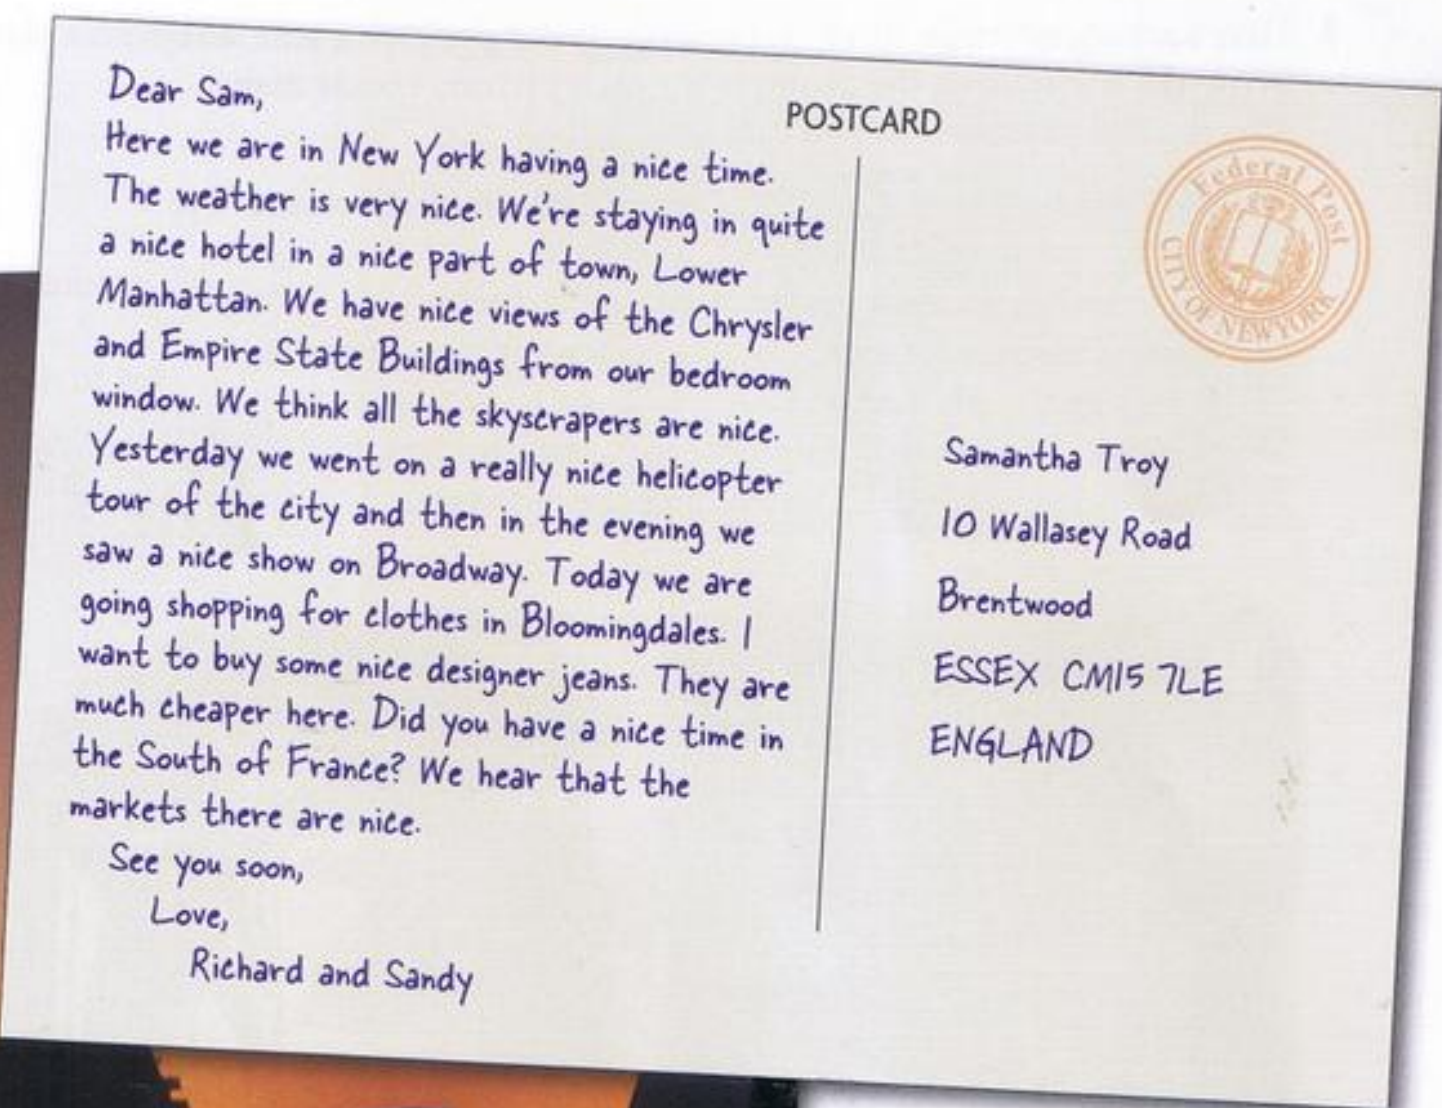 POSTCARD
Dear Sam,
Here we are in New York having a nice time.
The weather is very nice. We're staying in quite
a nice hotel in a nice part of town, Lower
Manhattan. We have nice views of the Chrysler
and Empire State Buildings from our bedroom
window. We think all the skyscrapers are nice.
Yesterday we went on a really nice helicopter
tour of the city and then in the evening we
saw a nice show on Broadway. Today we are
going shopping for clothes in Bloomingdales. I
want to buy some nice designer jeans. They are
much cheaper here. Did you have a nice time in
the South of France? We hear that the
markets there are nice.
See you soon,
Love,
Richard and Sandy
Federal Post
CITY OF NEW YORK
Samantha Troy
10 Wallasey Road
Brentwood
ESSEX CM15 7LE
ENGLAND